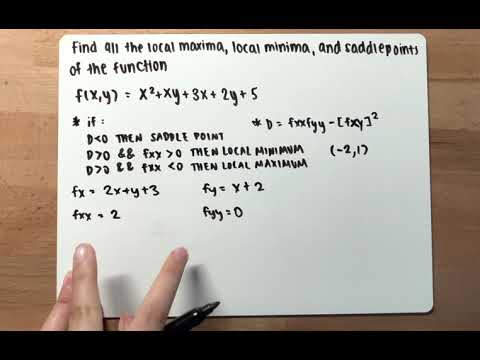 Find all the local maxima, local minima, and saddle points
of the function
f(x,y) = x²+xy+3x+2y+5
* if :
* D = fxxfyy-[fxy]²
D<0 THEN SADDLE POINT
D>0 && fxx >0 THEN LOCAL MINIMUM
(-2,1)
D>0 && fxx <0 THEN LOCAL MAXIMUM
fx = 2x+y+3
fy = x+2
fxx = 2
fyy=0